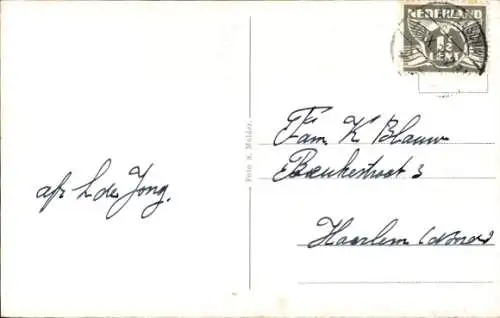 NEDERLAND
1½
CENT
Fam K Blauw
Haarlem (Noord)
afz L de Jong.
Foto S. Mulder.